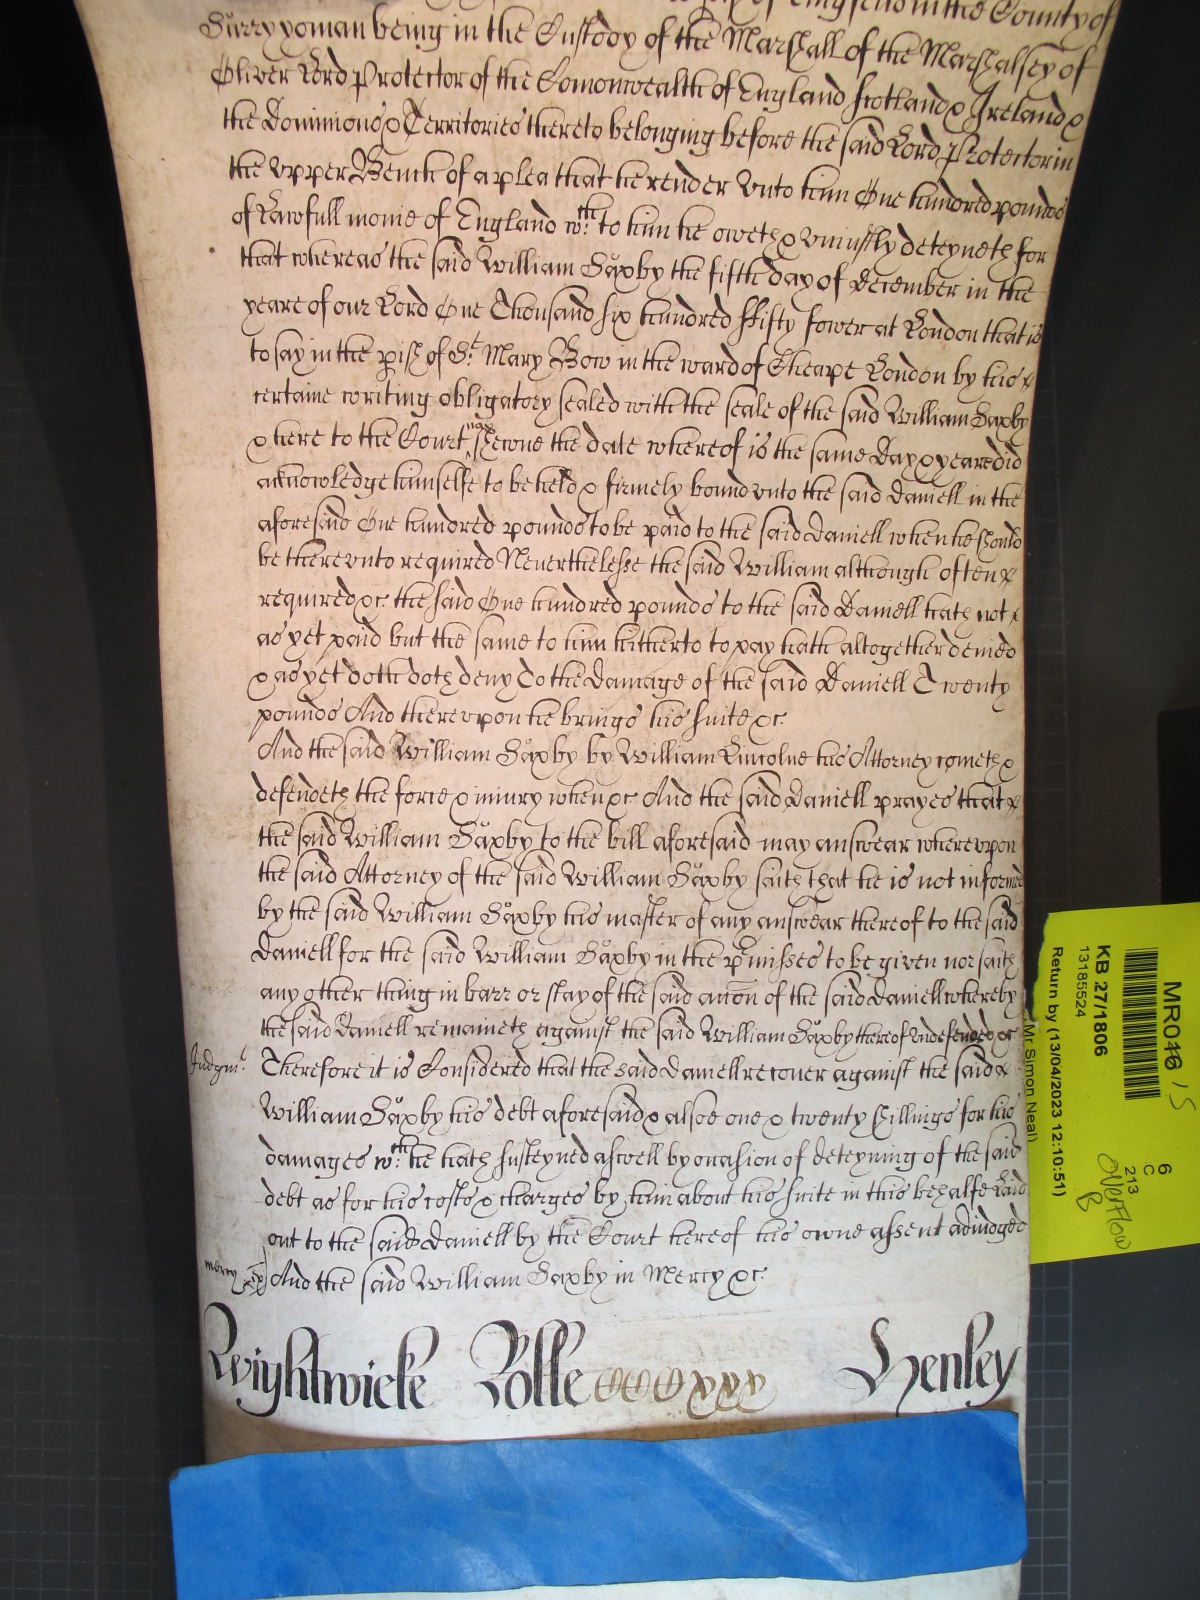 in the County of
Surry yoman being in the Custody of the Marshall of the Marshalsey of
Oliver Lord Protector of the Comonwealth of England Scotland & Ireland &
the Dominions & Territories thereto belonging before the said Lord Protector in
the Vpper Bench of a plea that he render vnto him One hundred pounds
of Lawfull monie of England wch. to him he oweth & vniustly deteyneth for
that whereas the said William Saxby the fifth day of December in the
yeare of our Lord One Thousand six hundred ffifty fower at London that is
to say in the pish of St. Mary Bow in the ward of Cheape London by his
certaine writing obligatory sealed with the seale of the said William Saxby
& here to the Court now shewne the date whereof is the same day & yeare did
acknowledge himselfe to be held & firmely bound vnto the said Daniell in the
aforesaid One hundred pounds to be paid to the said Daniell when he should
be therevnto required Neverthelesse the said William although often
required &c. the said One hundred pounds to the said Daniell hath not
as yet paid but the same to him hitherto to pay hath altogether denied
& as yet doth doth deny To the Damage of the said Daniell Twenty
pounds And therevpon he brings his suite &c.
And the said William Saxby by William Lincolne his Attorney cometh &
defendeth the force & iniury when &c. And the said Daniell prayes that
the said William Saxby to the bill aforesaid may answear wherevpon
the said Attorney of the said William Saxby saith that he is not informed
by the said William Saxby his master of any answear thereof to the said
Daniell for the said William Saxby in the pmisses to be given nor saith
any other thing in barr or stay of the said accon of the said Daniell whereby
the said Daniell remaineth against the said William Saxby thereof vndefended &c.
Judgmt. Therefore it is Considered that the said Daniell recouer against the said
William Saxby his debt aforesaid & alsoe one & twenty shillings for his
damages wch. he hath susteyned aswell by occasion of deteyning of the said
debt as for his costs & charges by him about his suite in this behalfe Laid
out to the said Daniell by the Court here of his owne assent adiudged
mercy And the said William Saxby in Mercy &c.
Wightwicke Rolle CCCCxxx Henley
MR046 15
KB 27/1806
13185524
Return by (13/04/2023 12:10:51)
(Mr Simon Neal)
6
C
213
overflow
B